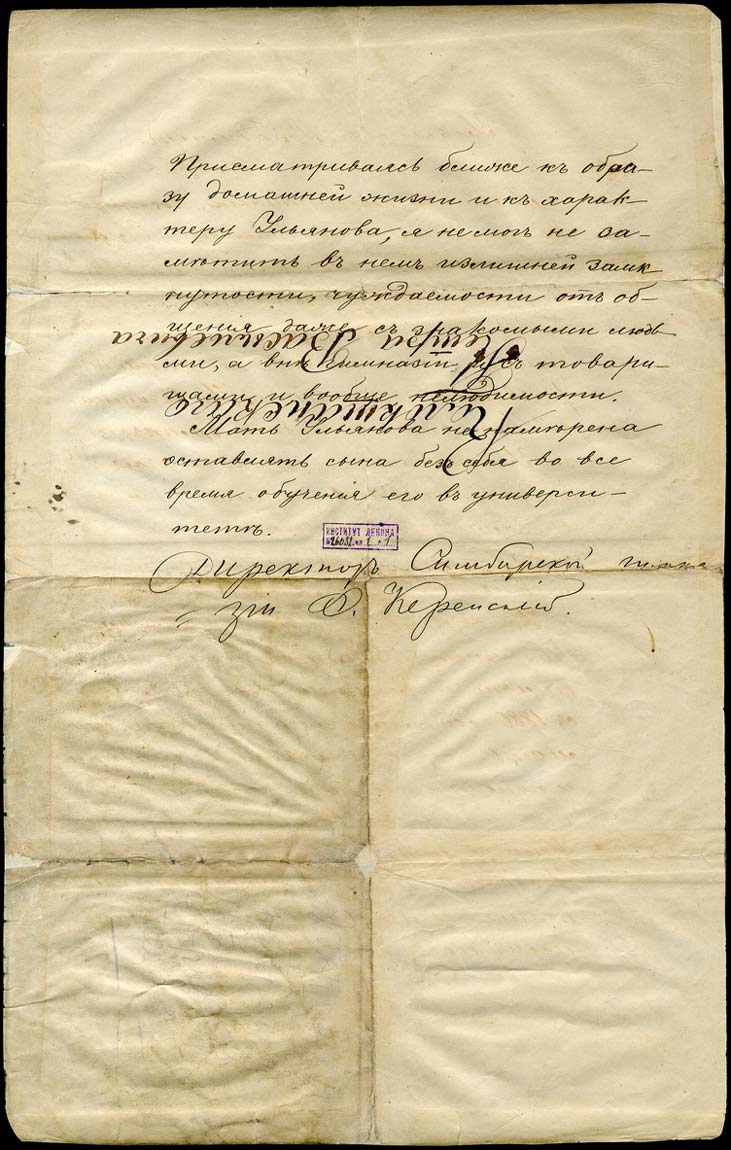 Присматриваясь ближе къ обра-
зу домашней жизни и къ харак-
теру Ульянова, я не могъ не за-
мѣтить въ немъ излишней замк
нутости, чуждаемости отъ об-
щенія даже съ знакомыми людь
ми, а внѣ гимназіи и съ товари-
щами и вообще нелюдимости.
Мать Ульянова не намѣрена
оставлять сына безъ себя во все
время обученія его въ универси-
тетѣ.
ИНСТИТУТ ЛЕНИНА
Директоръ Симбирской гимна
= зіи Ф. Керенскій.
Василевича